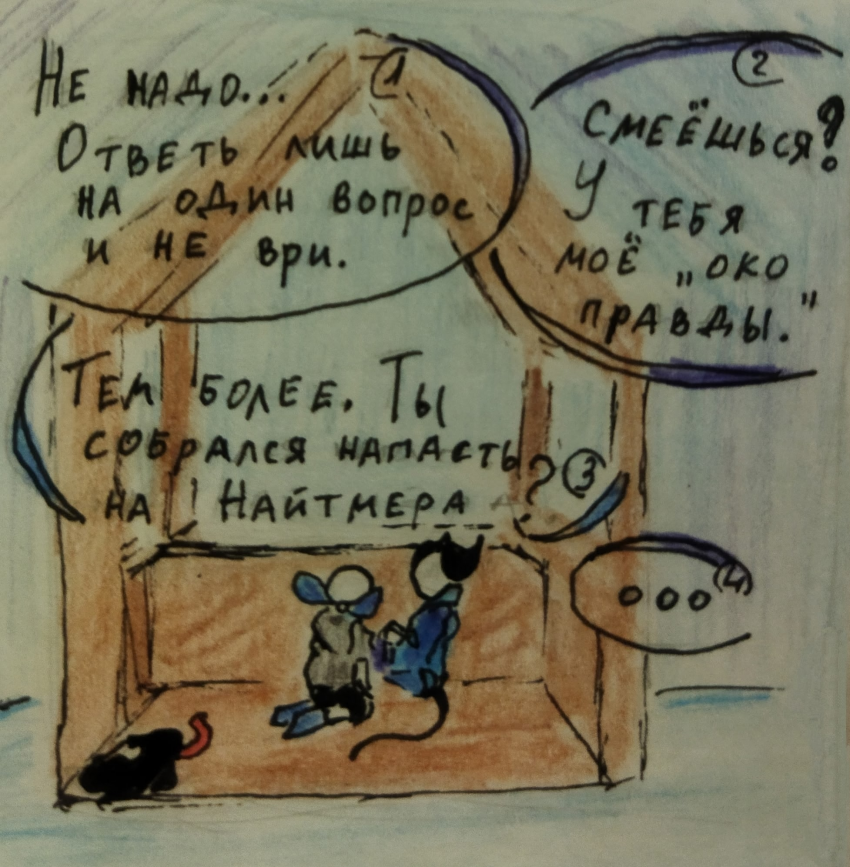 1
Не надо...
Ответь лишь
на один вопрос
и не ври.
2
Смеёшься?
У тебя
моё „око
правды."
Тем более. Ты
собрался напасть
на Найтмера? 3
... 4